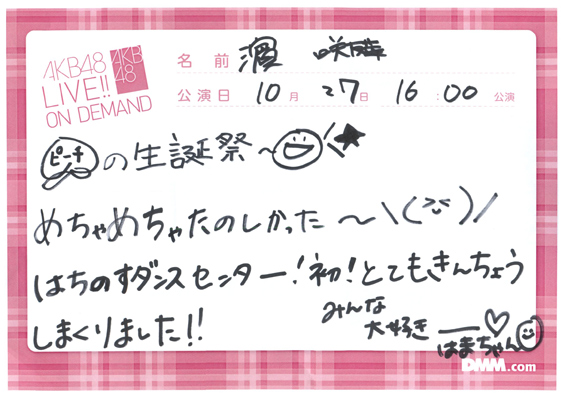 AKB48
LIVE!!
ON DEMAND
AKB
48
名前 濵 咲友菜
公演日 10月 27日 16:00 公演
ピーチの生誕祭〜
めちゃめちゃたのしかった〜\( )/
はちのすダンスセンター!初!とてもきんちょう
しまくりました!!
みんな
大好き ー♡
はまちゃん
DMM.com